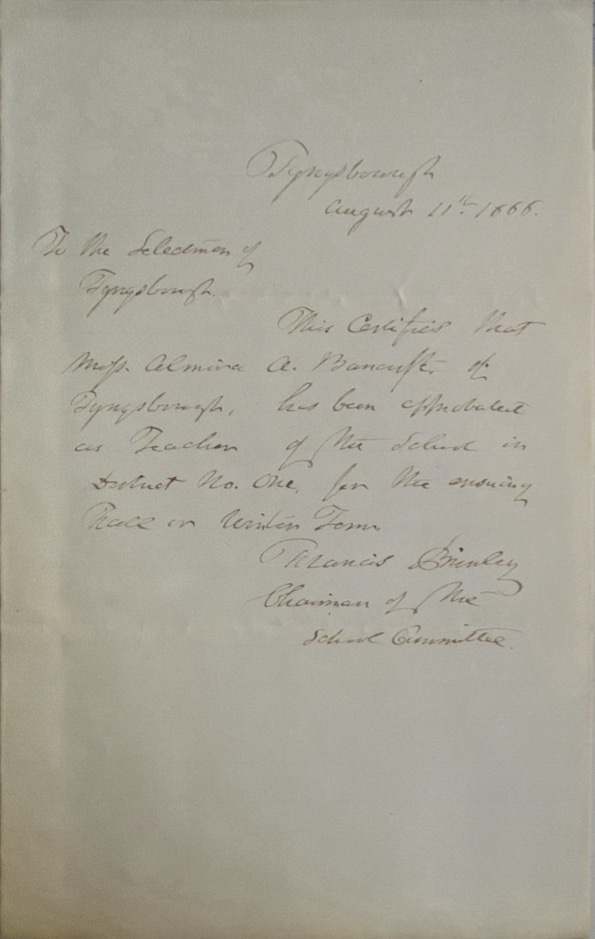 Tyngsborough
August 11th 1866.
To the Selectmen of
Tyngsborough.
This Certifies that
Miss. Almira A. Bancroft, of
Tyngsborough, has been approbated
as Teacher of the School in
District No. One, for the ensuing
Fall or Winter Term.
Francis Brinley
Chairman of the
School Committee.